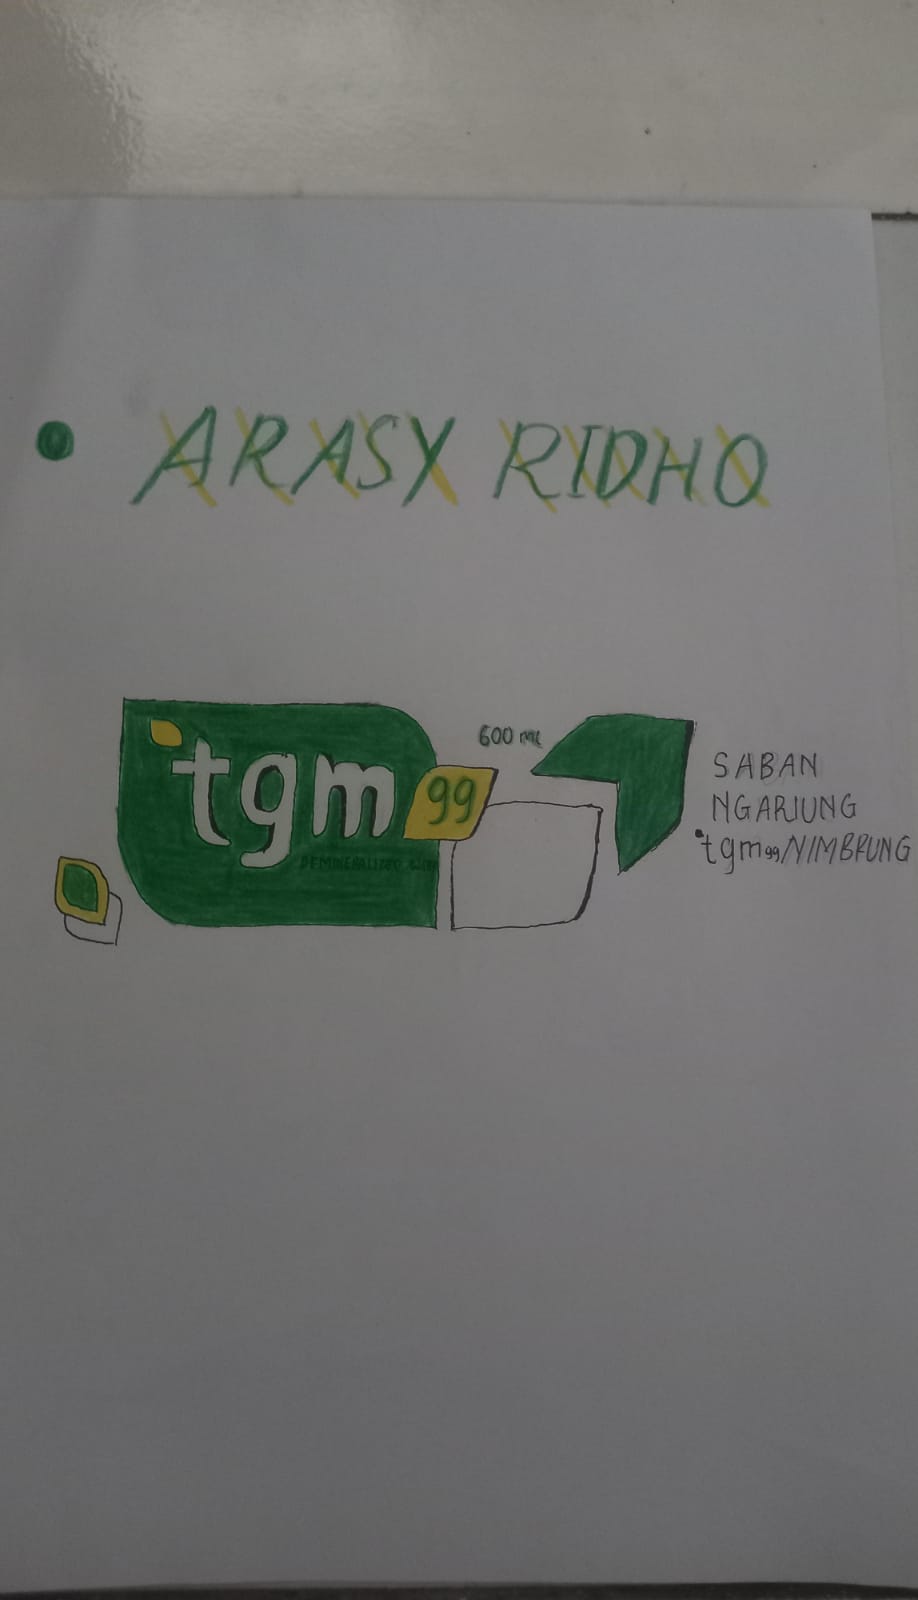 ARASY RIDHO
600 ml
tgm
99
DEMINERALIZED
SABAN
NGARIUNG
tgm99/NIMBRUNG